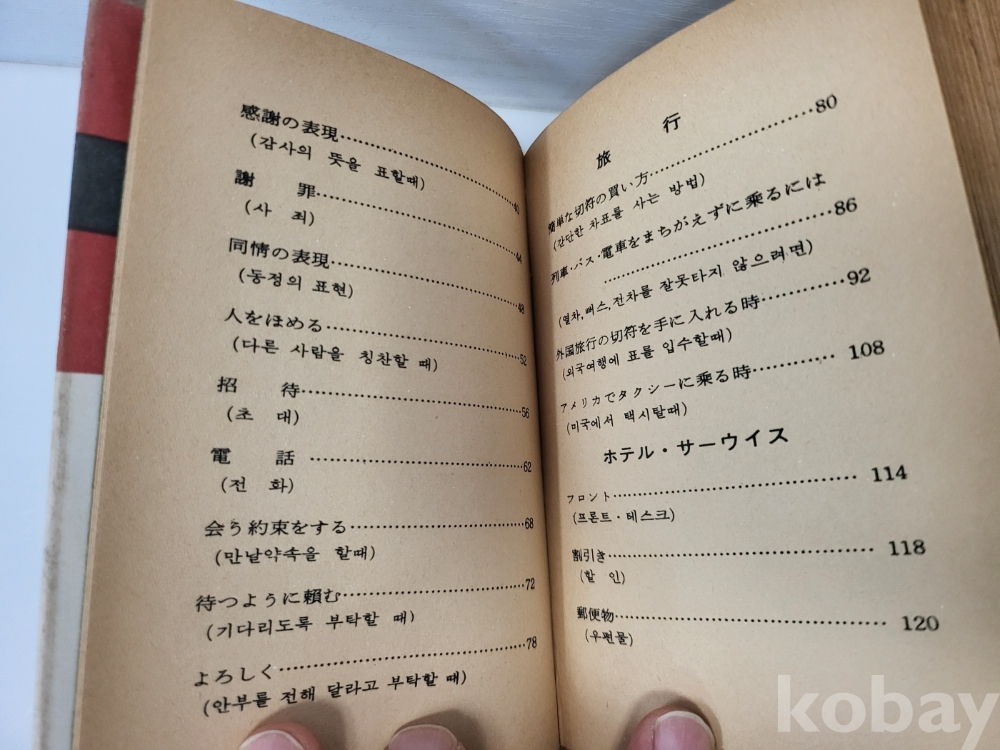 感謝の表現……………………40
(감사의 뜻을 표할때)
謝 罪……………………44
(사 죄)
同情の表現……………………48
(동정의 표현)
人をほめる……………………52
(다른 사람을 칭찬할 때)
招 待……………………56
(초 대)
電 話……………………62
(전 화)
会う約束をする……………………68
(만날약속을 할때)
待つように頼む……………………72
(기다리도록 부탁할 때)
よろしく……………………78
(안부를 전해 달라고 부탁할 때)
旅 行
簡単な切符の買い方……………………80
(간단한 차표를 사는 방법)
列車・バス・電車をまちがえずに乗るには
……………………86
(열차,뻐스,전차를 잘못타지 않으려면)
外国旅行の切符を手に入れる時……………………92
(외국여행에 표를 입수할때)
アメリカでタクシーに乗る時……………………108
(미국에서 택시탈때)
ホテル・サーウイス
フロント……………………114
(프론트・테스크)
割引き……………………118
(할 인)
郵便物……………………120
(우편물)
kobay